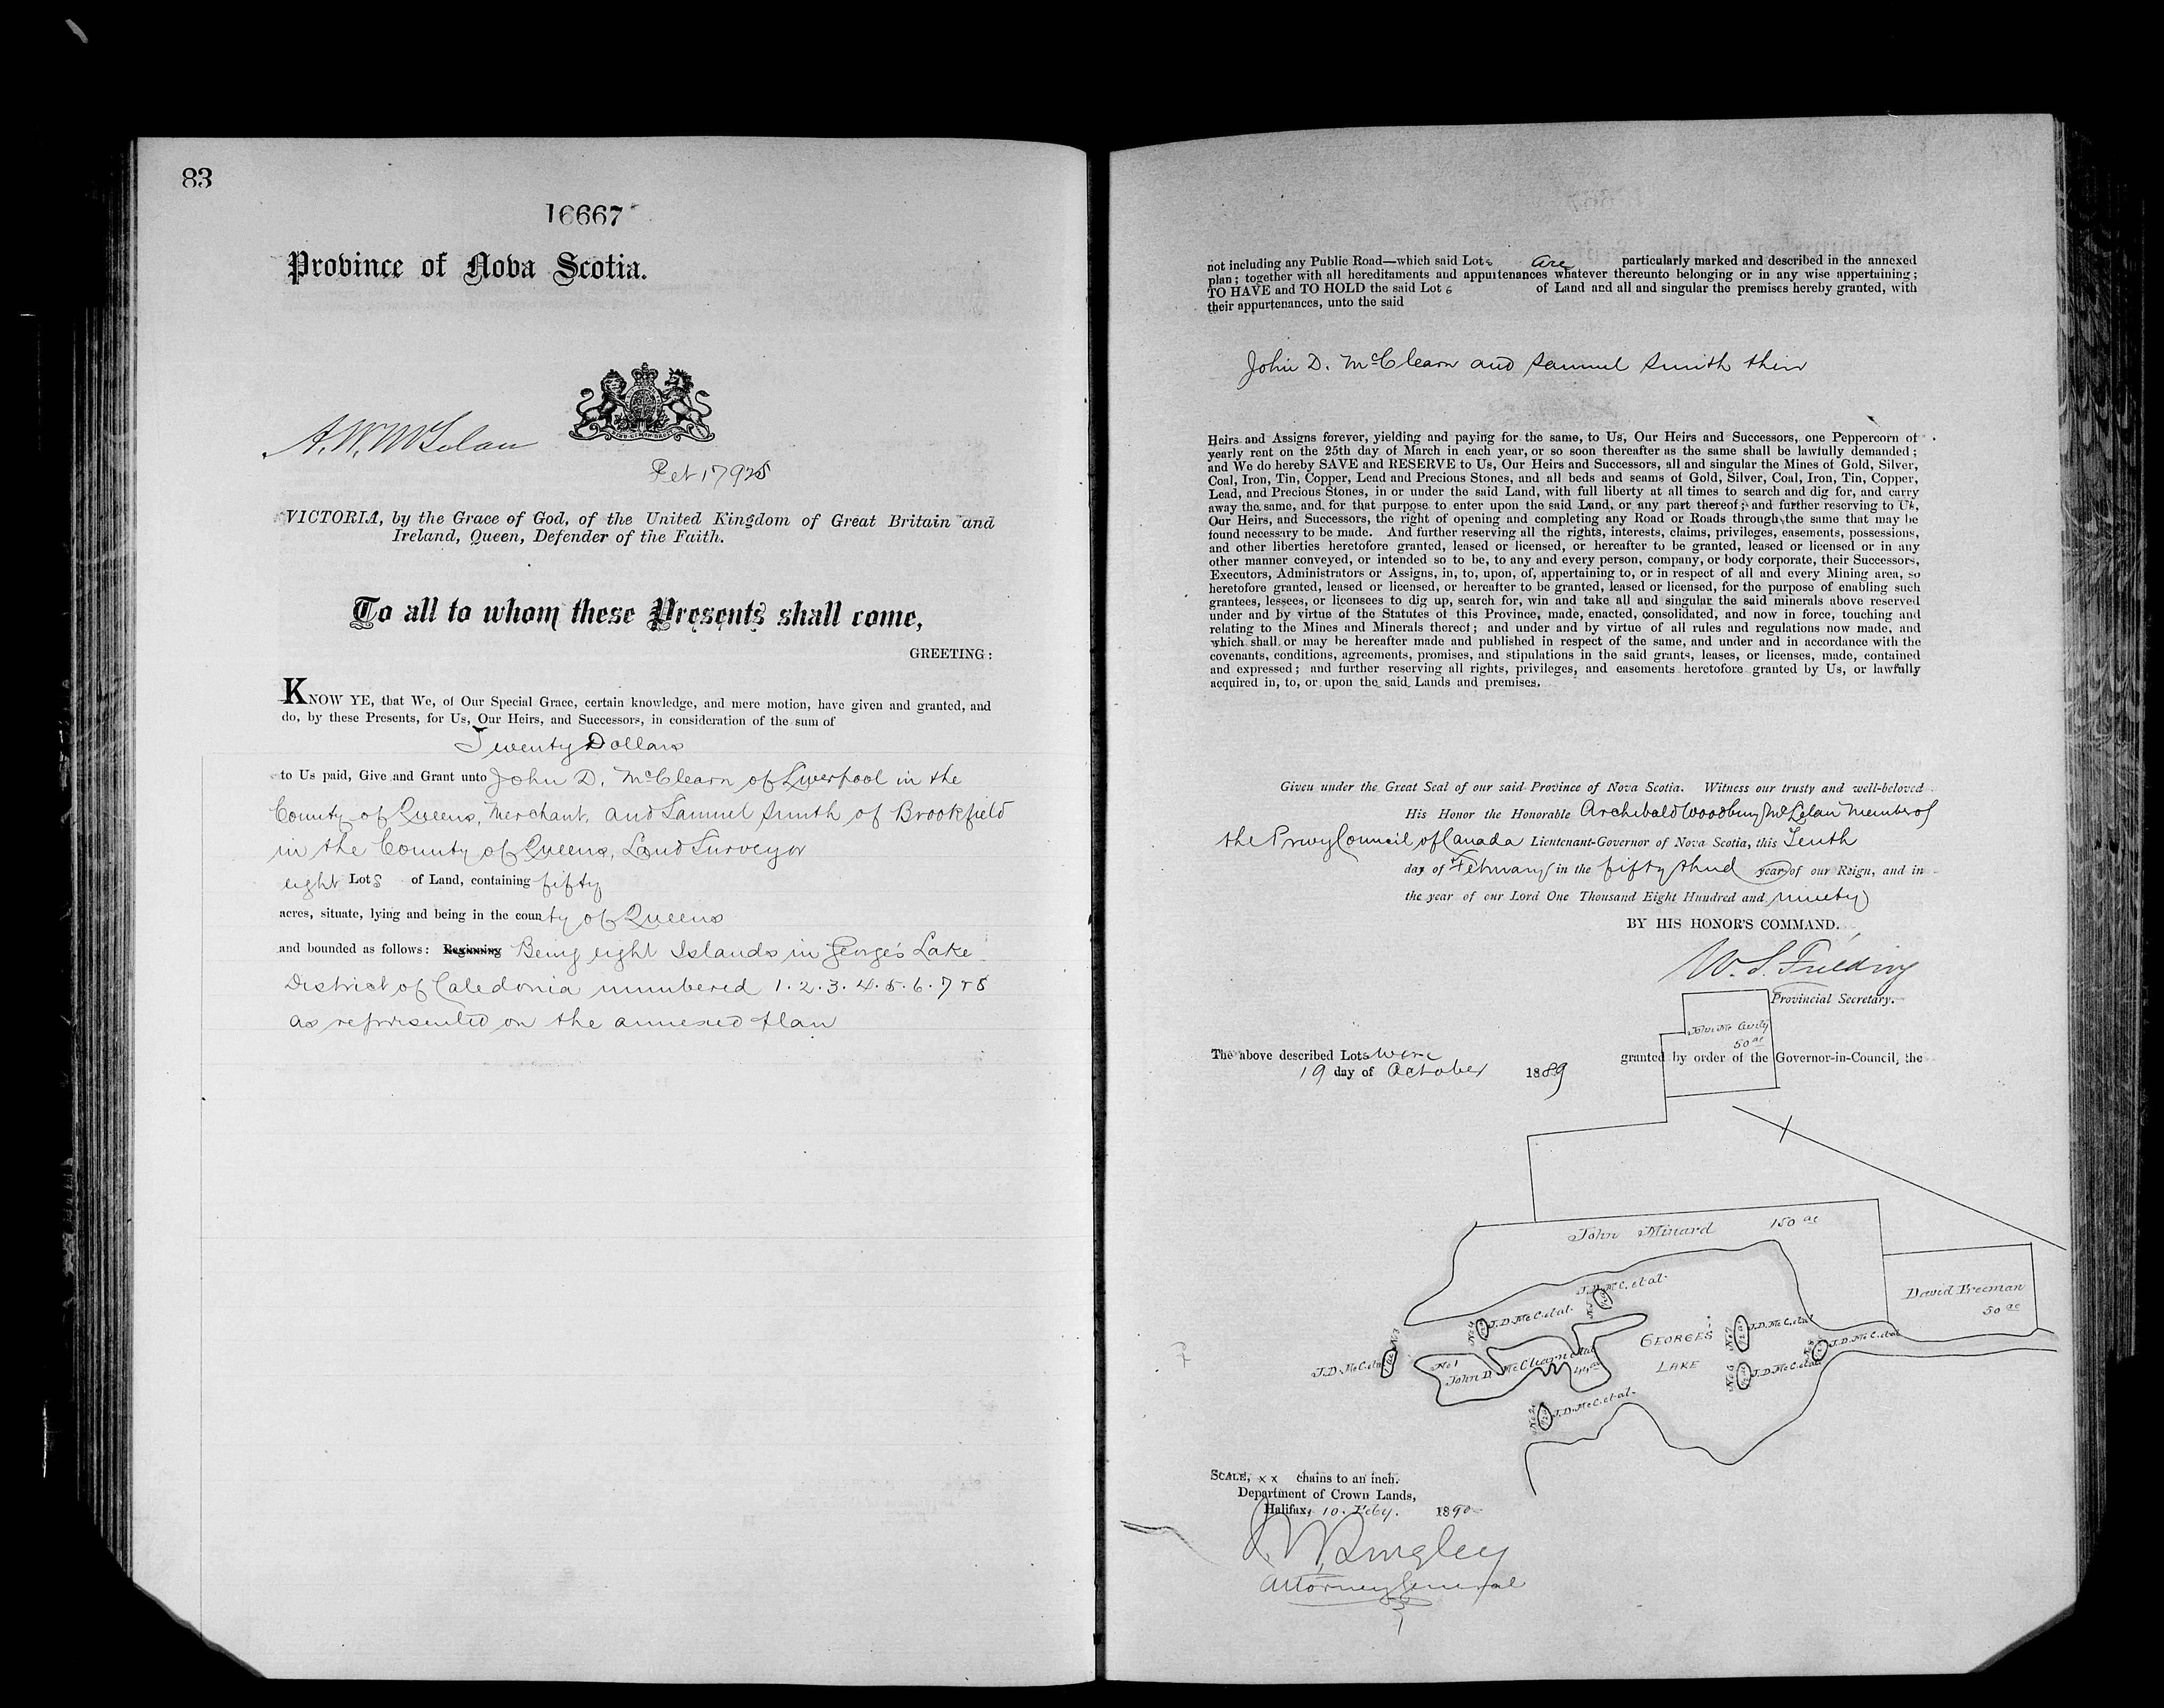 83
16667
Province of Nova Scotia.
A. W. McLelan
Pet 17925
VICTORIA, by the Grace of God, of the United Kingdom of Great Britain and
Ireland, Queen, Defender of the Faith.
To all to whom these Presents shall come,
GREETING:
KNOW YE, that We, of Our Special Grace, certain knowledge, and mere motion, have given and granted, and
do, by these Presents, for Us, Our Heirs, and Successors, in consideration of the sum of
Twenty Dollars
to Us paid, Give and Grant unto John D. McClearn of Liverpool in the
County of Queens, Merchant, and Samuel Smith of Brookfield
in the County of Queens, Land Surveyor
eight Lots of Land, containing fifty
acres, situate, lying and being in the county of Queens
and bounded as follows: Beginning Being eight Islands in George's Lake
District of Caledonia numbered 1. 2. 3. 4. 5. 6. 7 & 8
as represented on the annexed plan
not including any Public Road—which said Lots are particularly marked and described in the annexed
plan; together with all hereditaments and appurtenances whatever thereunto belonging or in any wise appertaining;
TO HAVE and TO HOLD the said Lots of Land and all and singular the premises hereby granted, with
their appurtenances, unto the said
John D. McClearn and Samuel Smith their
Heirs and Assigns forever, yielding and paying for the same, to Us, Our Heirs and Successors, one Peppercorn of
yearly rent on the 25th day of March in each year, or so soon thereafter as the same shall be lawfully demanded;
and We do hereby SAVE and RESERVE to Us, Our Heirs and Successors, all and singular the Mines of Gold, Silver,
Coal, Iron, Tin, Copper, Lead and Precious Stones, and all beds and seams of Gold, Silver, Coal, Iron, Tin, Copper,
Lead, and Precious Stones, in or under the said Land, with full liberty at all times to search and dig for, and carry
away the same, and for that purpose to enter upon the said Land, or any part thereof; and further reserving to Us,
Our Heirs, and Successors, the right of opening and completing any Road or Roads through the same that may be
found necessary to be made. And further reserving all the rights, interests, claims, privileges, easements, possessions,
and other liberties heretofore granted, leased or licensed, or hereafter to be granted, leased or licensed or in any
other manner conveyed, or intended so to be, to any and every person, company, or body corporate, their Successors,
Executors, Administrators or Assigns, in, to, upon, of, appertaining to, or in respect of all and every Mining area, so
heretofore granted, leased or licensed, or hereafter to be granted, leased or licensed, for the purpose of enabling such
grantees, lessees, or licensees to dig up, search for, win and take all and singular the said minerals above reserved
under and by virtue of the Statutes of this Province, made, enacted, consolidated, and now in force, touching and
relating to the Mines and Minerals thereof; and under and by virtue of all rules and regulations now made, and
which shall or may be hereafter made and published in respect of the same, and under and in accordance with the
covenants, conditions, agreements, promises, and stipulations in the said grants, leases, or licenses, made, contained
and expressed; and further reserving all rights, privileges, and easements heretofore granted by Us, or lawfully
acquired in, to, or upon the said Lands and premises.
Given under the Great Seal of our said Province of Nova Scotia. Witness our trusty and well-beloved
His Honor the Honorable Archibald Woodbury McLelan Member of
the Privy Council of Canada Lieutenant-Governor of Nova Scotia, this Tenth
day of February in the fifty third year of our Reign, and in
the year of our Lord One Thousand Eight Hundred and ninety
BY HIS HONOR'S COMMAND.
W. S. Fielding
Provincial Secretary.
50 ac
The above described Lots were granted by order of the Governor-in-Council, the
19 day of October 1889
John Minard 150 ac
David Freeman
50 ac
J.D. McC. et al.
No 5
No 4 J.D. McC. et al.
No 3
J.D. McC. et al
No 1
John D. McClearn et al
44 ac
GEORGES
LAKE
No 7 J.D. McC. et al
J.D. McC. et al
No 6 J.D. McC. et al
No 2 J.D. McC. et al.
SCALE, xx chains to an inch.
Department of Crown Lands,
Halifax, 10. Feby. 1890
J. W. Longley
Attorney General